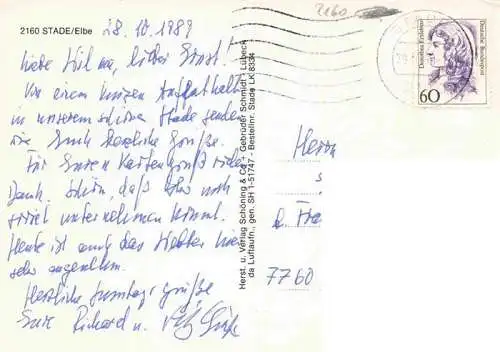 2160 STADE/Elbe
28.10.1989
2160
Liebe lieber Ernst!
Von einem kurzen Aufenthalt
in unserem schönen Stade senden
wir Euch herzliche Grüße.
Für Euren Kartengruß vielen
Dank. Schön, daß Ihr noch
soviel unternehmen könnt.
Heute ist auch das Wetter hier
sehr angenehm.
Herzliche Grüße
Eure Richard u.
Herst. u. Verlag Schöning & Co. + Gebrüder Schmidt - Lübeck
da Luftaufn., gen. SH 1-51747 · Bestellnr. Stade LK 8334
Deutsche Bundespost
60
Herrn
s
7760